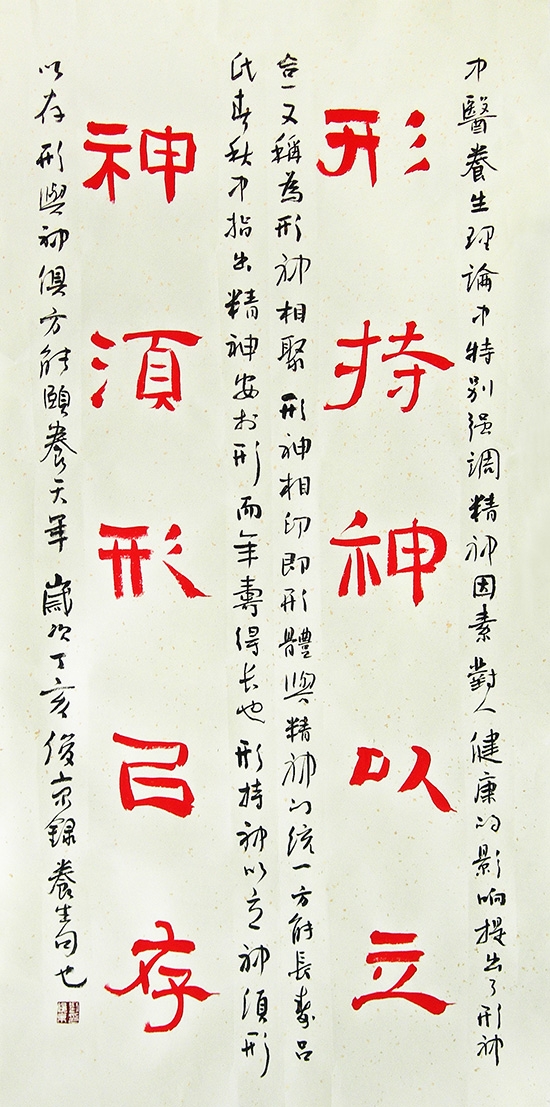 中醫養生理論中特别强調精神因素對人健康的影响提出了形神
形持神以立
合一又稱為形神相聚形神相印即形體與精神的统一方能長壽吕
氏春秋中指出精神安於形而年壽得长也形持神以立神須形
神須形已存
以存形與神俱方能頤養天年歲次丁亥俊京録養生句也